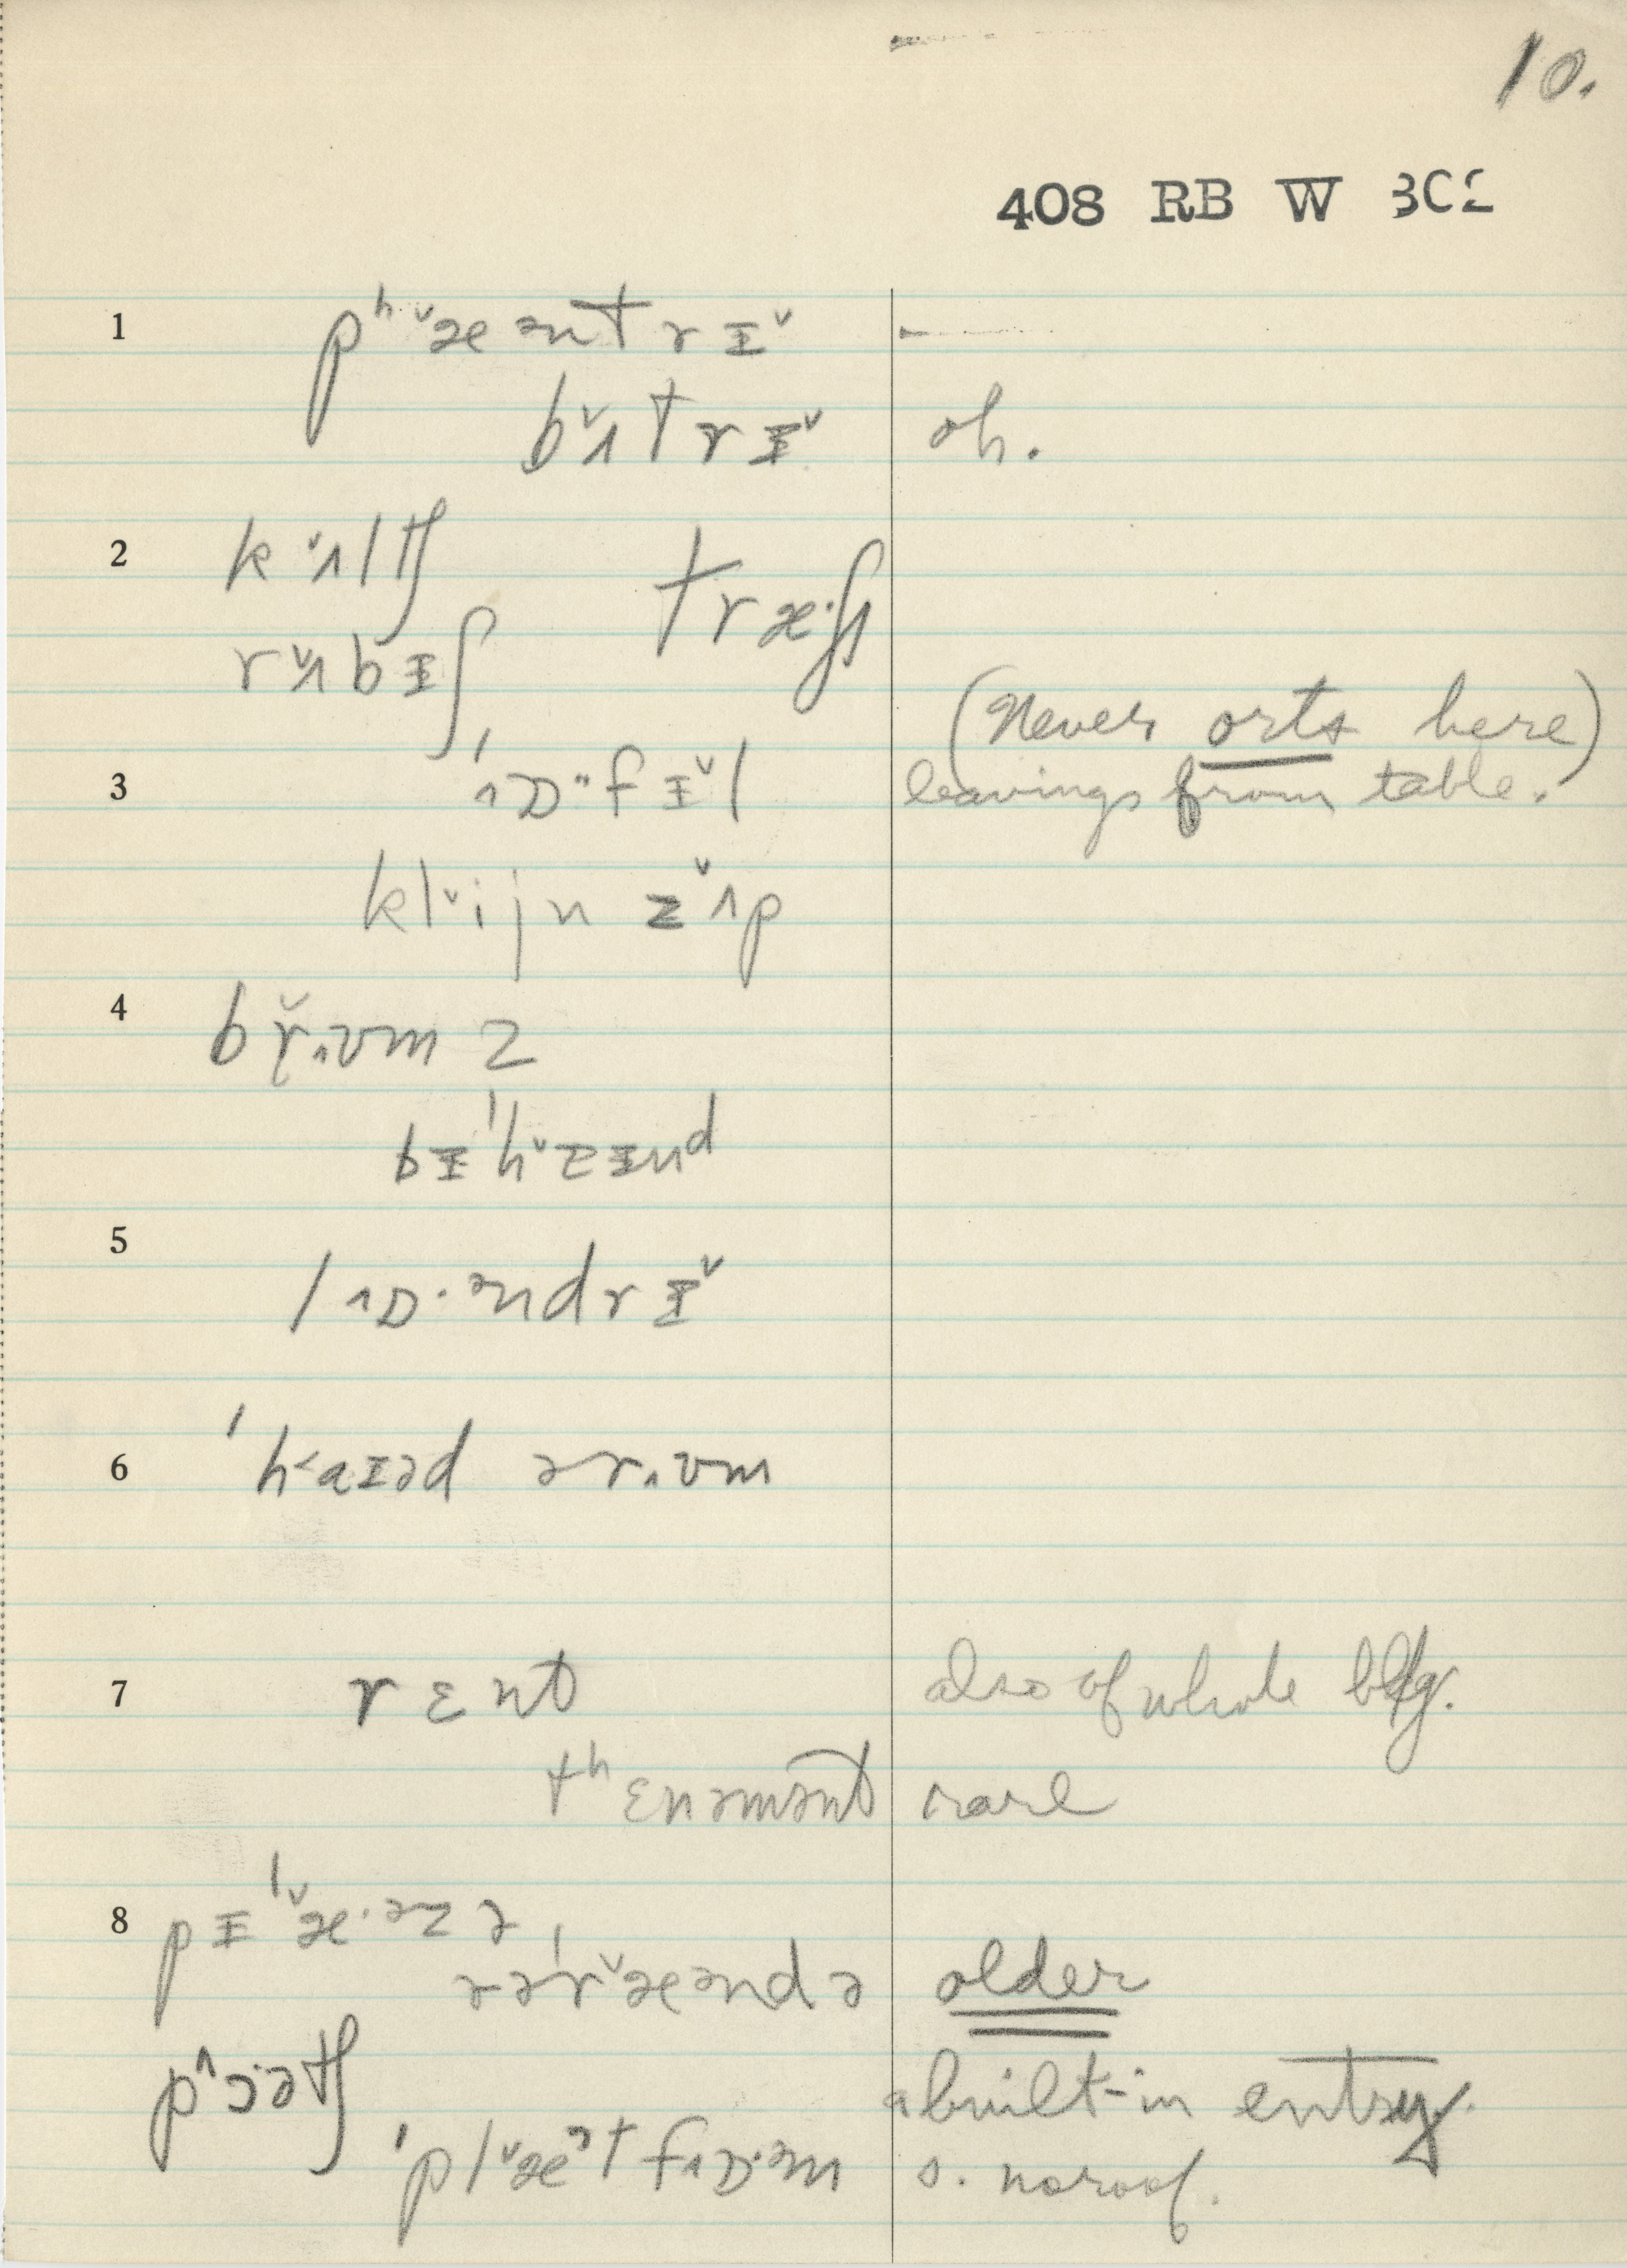 10.
408 RB W 302
1 pʰ˅æəntrɪ˅
b˅ʌtrɪ˅ oh.
2 k˅ʌltʃ træ·ʃ
r˅ʌbɪʃ
(Never orts here)
3 ˈɒ··fɪ˅l leavings from table.
kl˅ijn z˅ʌp
4 br̆.ʊm z
bɪˈh˅ɛɪnd
5 lɒ·əndrɪ˅
6 ˈh˂aɪəd ər.ʊm
7 rɛnt also of whole bldg.
tʰɛnəmənt rare
8 pɪˈ˅æ·əzə
vəˈr˅æəndə older
p˄ɔ·ətʃ a built-in entry.
ˈpl˅æətfɒ·əm s. no roof.